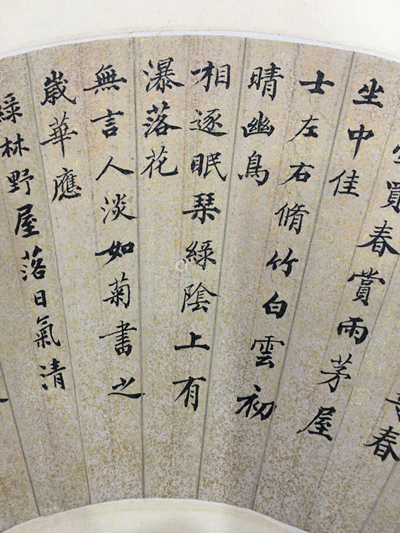 買春賞雨茅屋
坐中佳
士左右脩竹白雲初
晴幽鳥
相逐眠琹綠陰上有
瀑落花
無言人淡如菊書之
歲華應
綠林野屋落日氣清